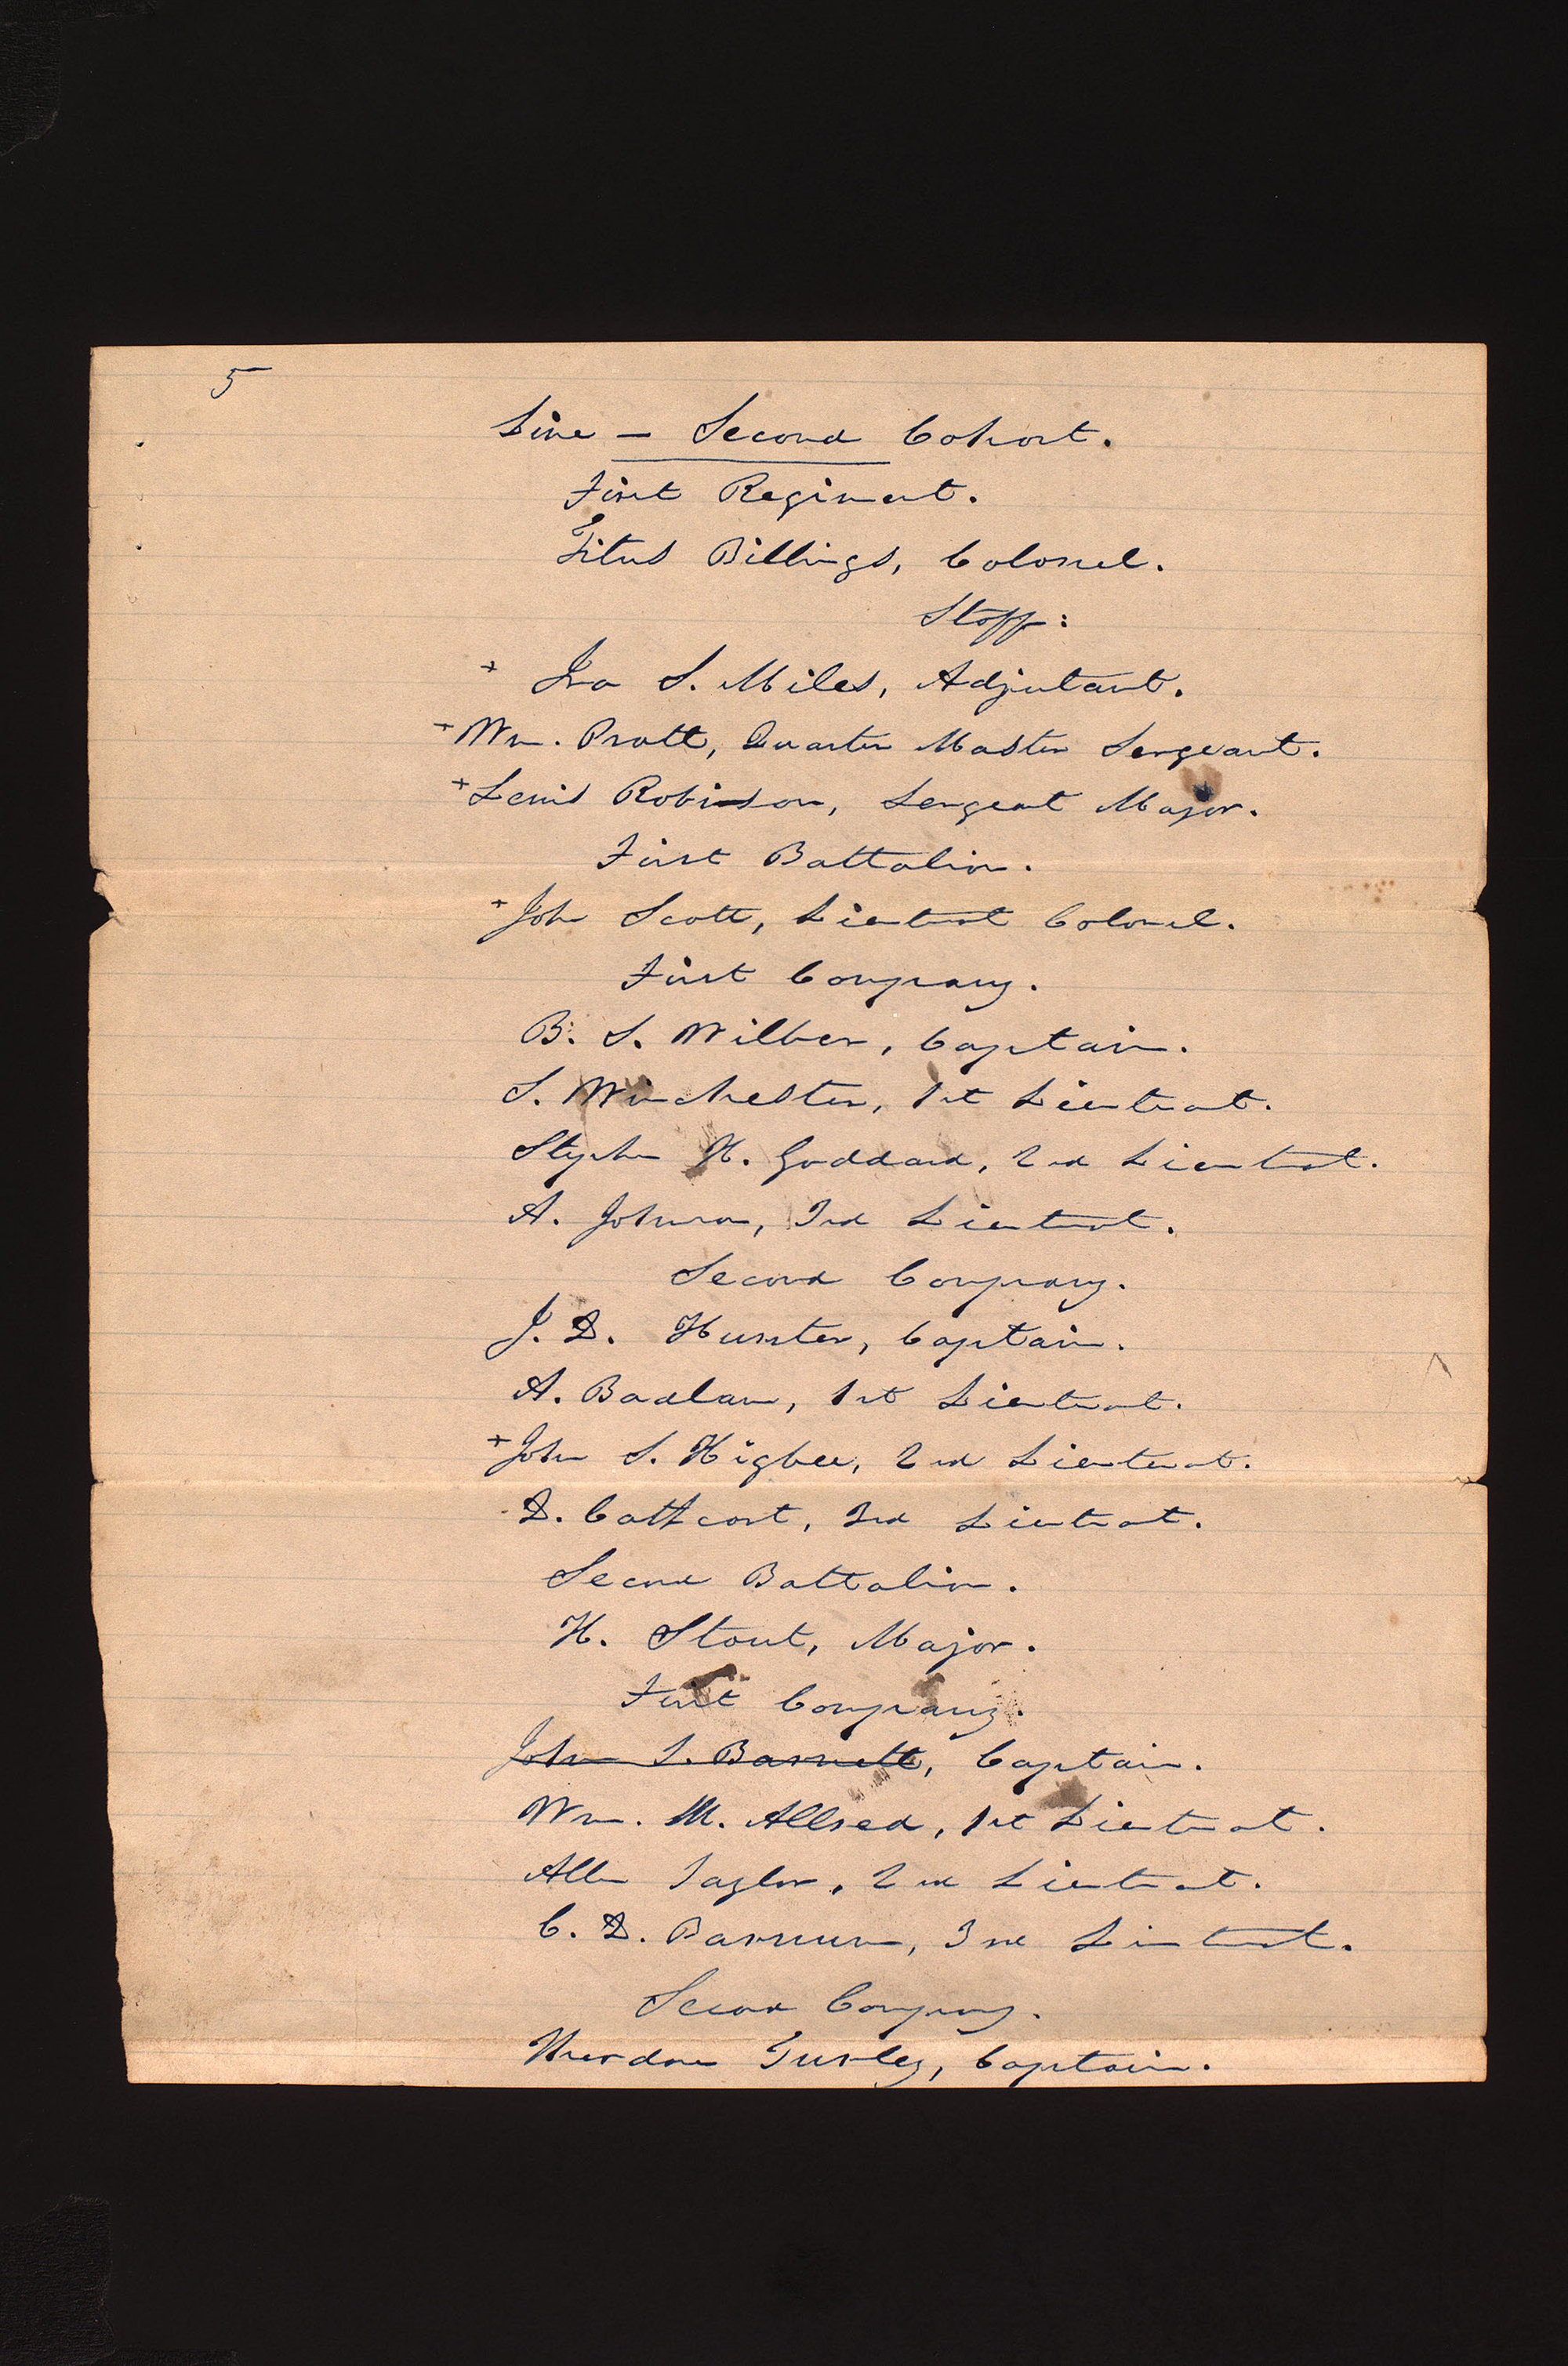 5
Line — Second Cohort.
First Regiment.
Titus Billings, Colonel.
Staff:
+ Ira S. Miles, Adjutant.
+ Wm. Pratt, Quarter Master Sergeant.
+ Lewis Robinson, Sergeant Major.
First Battalion.
+ John Scott, Lieutenant Colonel.
First Company.
B. S. Wilber, Captain.
S. Winchester, 1st Lieutenant.
Stephen H. Goddard, 2nd Lieutenant.
A. Johnson, 3rd Lieutenant.
Second Company.
J. D. Hunter, Captain.
A. Badlam, 1st Lieutenant.
+ John S. Higbee, 2nd Lieutenant.
D. Cathcart, 3rd Lieutenant.
Second Battalion.
H. Stout, Major.
First Company.
John T. Barnett, Captain.
Wm. M. Allred, 1st Lieutenant.
Allen Taylor, 2nd Lieutenant.
C. D. Barnum, 3rd Lieutenant.
Second Company.
Theodore Turley, Captain.